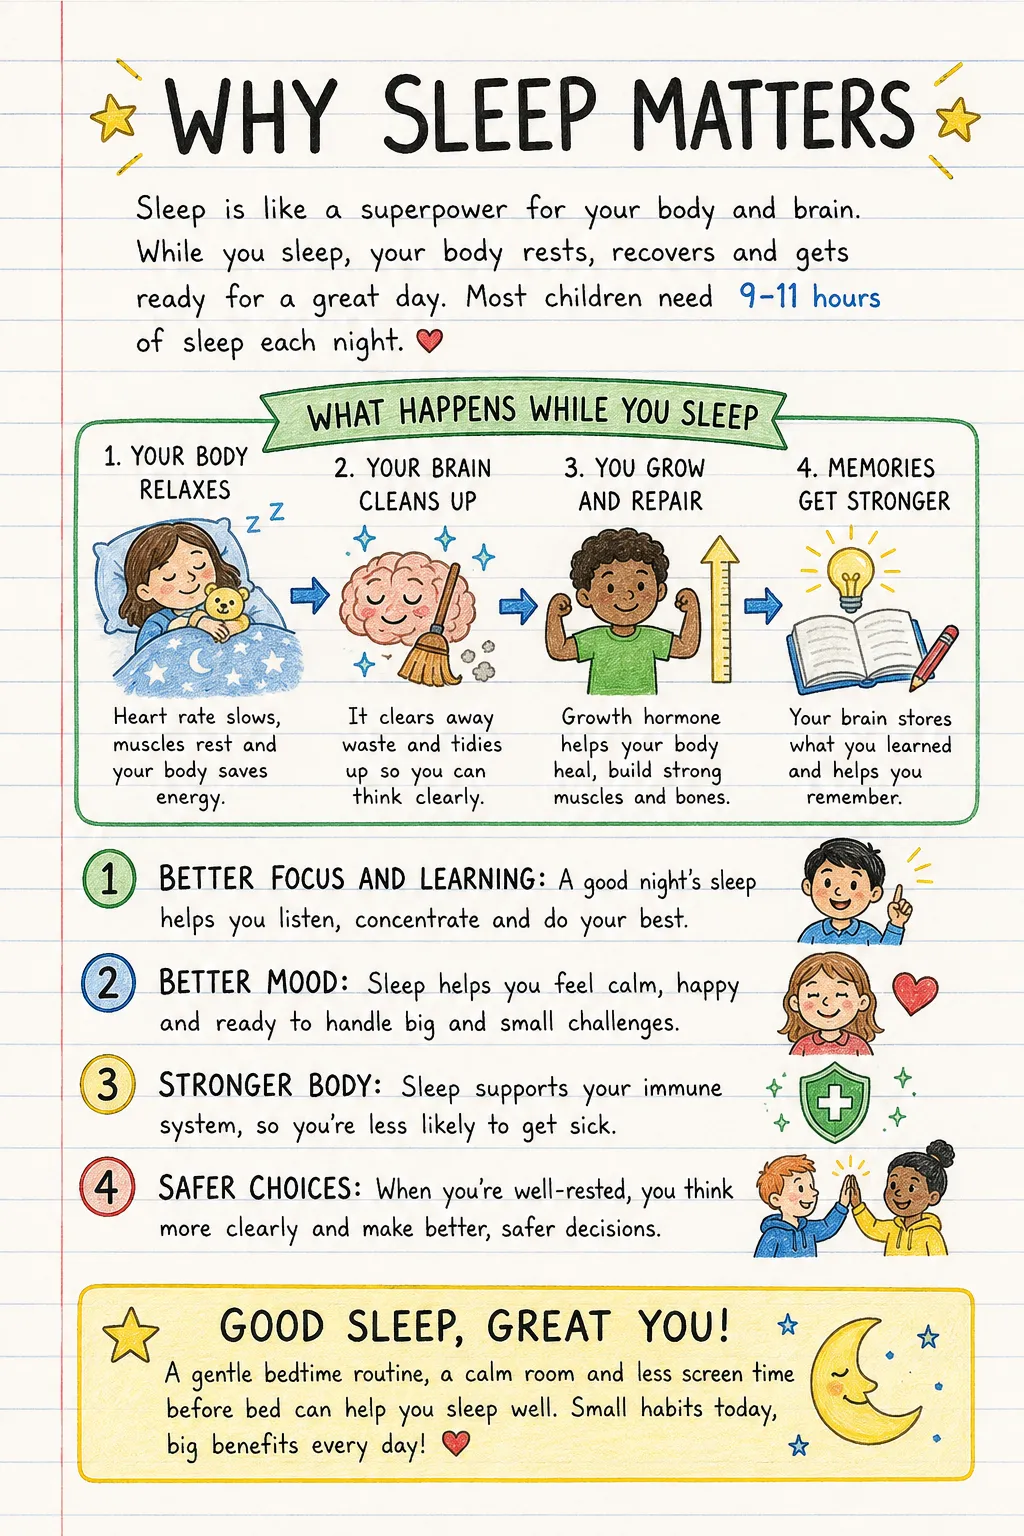 WHY SLEEP MATTERS
Sleep is like a superpower for your body and brain.
While you sleep, your body rests, recovers and gets
ready for a great day. Most children need 9-11 hours
of sleep each night.
WHAT HAPPENS WHILE YOU SLEEP
1. YOUR BODY
RELAXES
z z
Heart rate slows,
muscles rest and
your body saves
energy.
2. YOUR BRAIN
CLEANS UP
It clears away
waste and tidies
up so you can
think clearly.
3. YOU GROW
AND REPAIR
Growth hormone
helps your body
heal, build strong
muscles and bones.
4. MEMORIES
GET STRONGER
Your brain stores
what you learned
and helps you
remember.
1 BETTER FOCUS AND LEARNING: A good night's sleep
helps you listen, concentrate and do your best.
2 BETTER MOOD: Sleep helps you feel calm, happy
and ready to handle big and small challenges.
3 STRONGER BODY: Sleep supports your immune
system, so you're less likely to get sick.
4 SAFER CHOICES: When you're well-rested, you think
more clearly and make better, safer decisions.
GOOD SLEEP, GREAT YOU!
A gentle bedtime routine, a calm room and less screen time
before bed can help you sleep well. Small habits today,
big benefits every day!